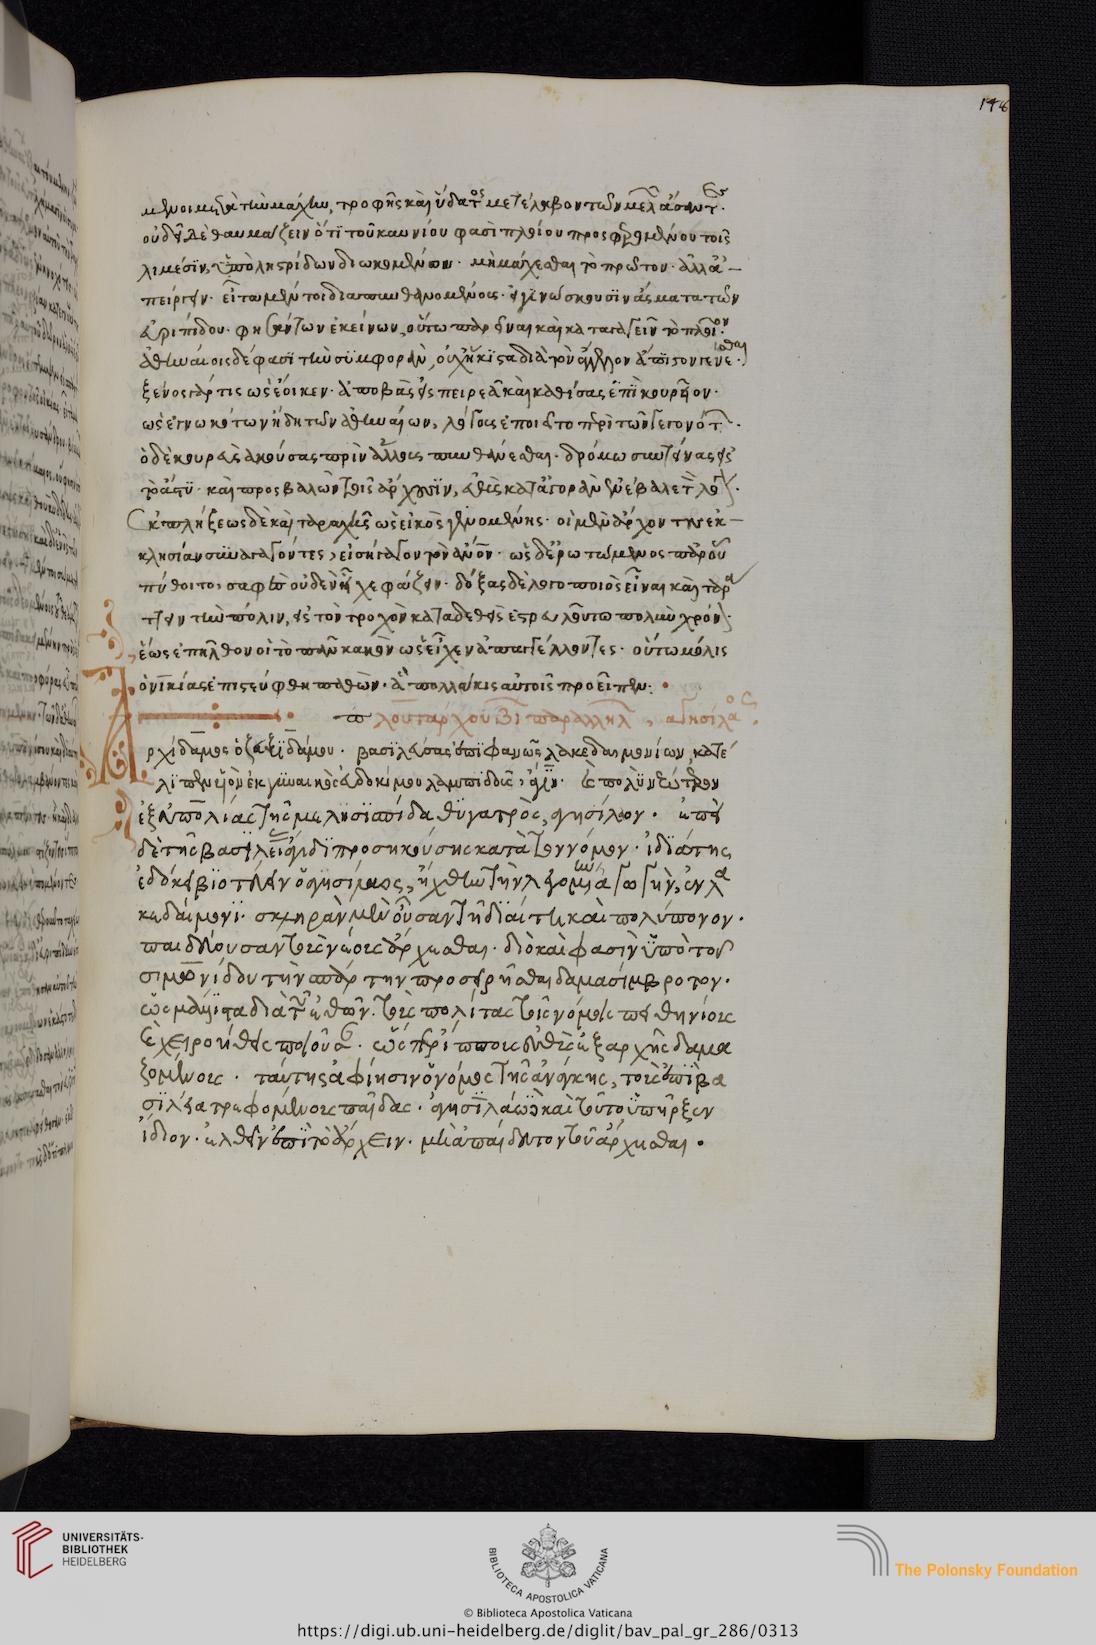 146
μενοι μετὰ τὴν μάχην, τροφῆς καὶ ὕδατος μετέλαβον τῶν μελῶν ᾄσαντες.
οὐ δεῖ δὲ θαυμάζειν ὅτι τοῦ καυνίου φασὶ πλοίου προσφερομένου τοῖς
λιμέσιν, ὑπὸ ληστρίδων διωκομένων. μὴ μάχεσθαι τὸ πρῶτον. ἀλλ' ἀ-
πείργειν. εἶτα μέντοι διαπυνθανομένους. εἰ γινώσκουσιν ᾄσματα τῶν
εὐριπίδου. φησάντων ἐκείνων, οὕτω παρεῖναι καὶ καταγαγεῖν τὸ πλοῖον.
ἀθηναίοις δέ φασι τὴν συμφορὰν, οὐχ ἥκιστα διὰ τὸν ἄγγελον ἄπιστον γενέσθαι.
ξένος γάρ τις ὡς ἔοικεν. ἀποβὰς εἰς πειρεᾶ καὶ καθίσας ἐπὶ κουρεῖον.
ὡς ἐγνωκότων ἤδη τῶν ἀθηναίων, λόγους ἐποιεῖτο περὶ τῶν γεγονότων.
ὁ δὲ κουρεὺς ἀκούσας πρὶν ἄλλους πυνθάνεσθαι. δρόμω συντείνας εἰς
τὸ ἄστυ. καὶ προσβαλὼν τοῖς ἄρχουσιν, εὐθὺς κατ' ἀγορὰν ἐνέβαλε τὸν λόγον.
ἐκπλήξεως δὲ καὶ ταραχῆς ὡς εἰκὸς γενομένης. οἱ μὲν ἄρχοντες ἐκ-
κλησίαν συναγαγόντες, εἰσήγαγον τὸν ἄνθρωπον. ὡς δ' ἐρωτώμενος παρ' οὗ
πύθοιτο, σαφὲς οὐδὲν εἶχε φράζειν. δόξας δὲ λογοποιὸς εἶναι καὶ ταρά
ττειν τὴν πόλιν, εἰς τὸν τροχὸν καταδεθεὶς ἐστρεβλοῦτο πολὺν χρόνον.
ἕως ἐπῆλθον οἱ τὸ πᾶν κακὸν ὡς εἶχεν ἀπαγγέλλοντες. οὕτω μόλις
ὁ νικίας ἐπιστεύθη παθὼν. ἃ πολλάκις αὐτοῖς προεῖπεν:
πλουτάρχου βίοι παράλληλοι, ἀγησίλαος.
Ἀρχίδαμος ὁ ζευξιδάμου. βασιλεύσας ἐπιφανῶς λακεδαιμονίων, κατέ
λιπεν υἱὸν ἐκ γυναικὸς εὐδοκίμου λαμπιδοῦς, ἆγιν. καὶ πολὺ νεώτερον
ἐξ εὐπωλίας τῆς μελησιππίδα θυγατρὸς, ἀγησίλαον. ἐπεὶ
δὲ τῆς βασιλείας ἄγιδι προσηκούσης κατὰ τὸν νόμον. ἰδιώτης
ἐδόκει βιοτεύσειν ὁ ἀγησίλαος, ἤχθη τὴν λεγομένην ἀγωγὴν, ἐν λα
κεδαίμονι. σκληρὰν μὲν οὖσαν τῇ διαίτῃ καὶ πολύπονον.
παιδεύουσαν τοὺς νέους ἄρχεσθαι. διὸ καὶ φασὶν ὑπὸ τοῦ
σιμωνίδου τὴν σπάρτην προσειρῆσθαι δαμασίμβροτον.
ὡς μάλιστα διὰ τῶν ἐθῶν. τοὺς πολίτας τοῖς νόμοις πειθηνίους
καὶ χειροήθεις ποιοῦσαν. ὥσπερ ἵππους εὐθὺς ἐξ ἀρχῆς δαμα
ζομένους. ταύτης ἀφίησιν ὁ νόμος τῆς ἀνάγκης, τοὺς ἐπὶ βα
σιλείᾳ τρεφομένους παῖδας. ἀγησιλάῳ δὲ καὶ τοῦτο ὑπῆρξεν
ἴδιον. ἐλθεῖν ἐπὶ τὸ ἄρχειν. μὴ ἀπαίδευτον τοῦ ἄρχεσθαι.
UNIVERSITÄTS-
BIBLIOTHEK
HEIDELBERG
BIBLIOTECA APOSTOLICA VATICANA
The Polonsky Foundation
© Biblioteca Apostolica Vaticana
https://digi.ub.uni-heidelberg.de/diglit/bav_pal_gr_286/0313